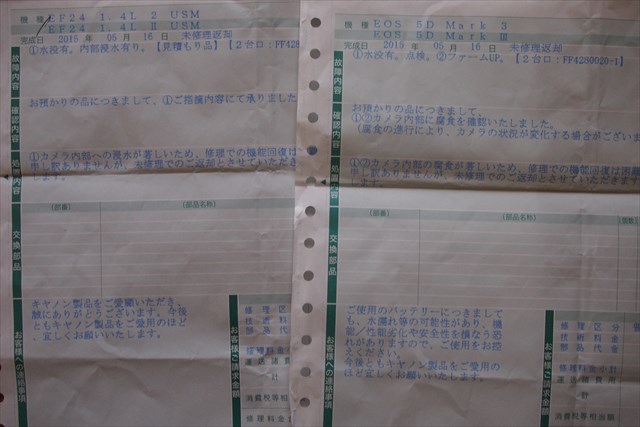 機種 EF24 1.4L 2 USM
EF24 1.4L II USM
完成日 2015 年 05 月 16 日 未修理返却
故障内容
①水没有。内部浸水有り。【見積もり品】【2台口:FF428
確認内容
お預かりの品につきまして、①ご指摘内容にて承りました
処置内容
①カメラ内部への浸水が著しいため、修理での機能回復は
申し訳ありませんが、未修理でのご返却とさせていただき
します。
交換部品
(部番) (部品名称)
お客様への連絡事項
キヤノン製品をご愛顧いただき、
誠にありがとうございます。今後
ともキヤノン製品をご愛用のほど
、宜しくお願いいたします。
お客様ご請求金額
修理区
技術料
部品代
修理料金
運送諸費
計
消費税等相
修理料金
機種 EOS 5D Mark 3
EOS 5D Mark III
完成日 2015 年 05 月 16 日 未修理返却
故障内容
①水没有。点検。②ファームUP。【2台口:FF4280020-1】
確認内容
お預かりの品につきまして、
①②カメラ内部に腐食を確認いたしました。
(腐食の進行により、カメラの状況が変化する場合がござい
処置内容
①②カメラ内部の腐食が著しいため、修理での機能回復は困難
申し訳ありませんが、未修理でのご返却とさせていただきます
します。
交換部品
(部番) (部品名称) (個数)
お客様への連絡事項
ご使用のバッテリーにつきまして
も、水濡れ等の可能性があり、機
能/性能劣化や安全性を損なう恐
れがありますので、ご使用をお控
えください。
今後ともキヤノン製品をご愛用の
ほど宜しくお願いいたします。
お客様ご請求金額
修理区分
技術料金
部品代金
修理料金小計
運送諸費用
計
消費税等相当額